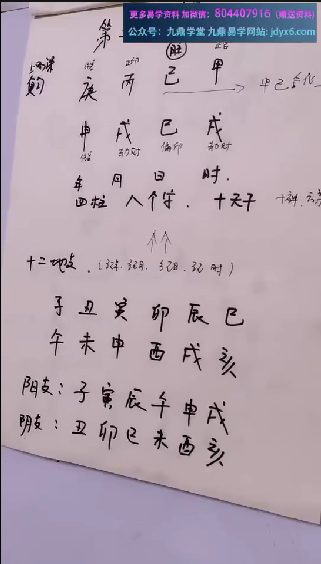 更多易学资料 加微信：804407916（赠送资料）
公众号：九鼎学堂 九鼎易学网站：jdyx6.com
第
旺
庚 丙 己 甲
申 戌 巳 戌
劫财 偏印 劫财
年 月 日 时.
四柱 八个字. 十天干
十二地支.
子 丑 寅 卯 辰 巳
午 未 申 酉 戌 亥
阳支：子 寅 辰 午 申 戌
阴支：丑 卯 巳 未 酉 亥